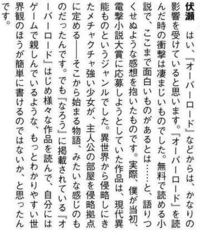 伏瀬　はい、『オーバーロード』などからは、かなりの
影響を受けていると思います。『オーバーロード』を読
んだ時の衝撃は凄まじいものでした。無料で読める小
説で、ここまで面白いものがあるとは……と、語りつ
くせぬような感想を抱いたものです。実際、僕が当初、
電撃小説大賞に応募しようとしていた作品は、現代異
能ものというジャンルでした。異世界から侵略しにき
たメチャクチャ強い少女が、主人公の部屋を侵略拠点
に定める――そこから始まる物語、みたいな感じのも
のだったんです。でも「なろう」に掲載されている『オ
ーバーロード』はじめ様々な作品を読んで、自分には
ゲームで親しんでいるような、もっとわかりやすい世
界観のほうが簡単に書けるのではないか、と思ったん
です。